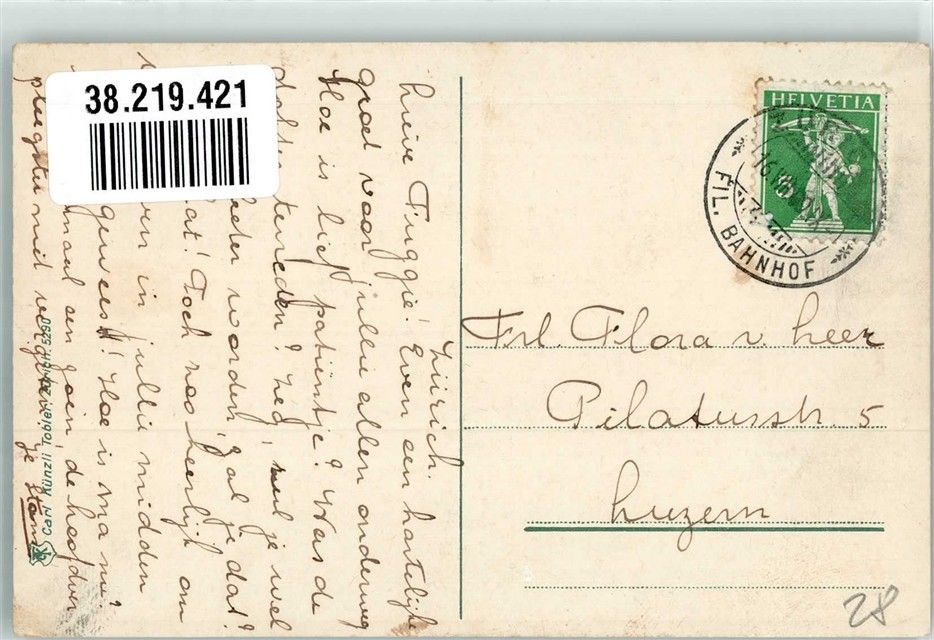 38.219.421
HELVETIA
FIL. BAHNHOF
Zürich.
Lieve Fluggie! Even een hartelijke
groet voor jullie allen onderweg
Hoe is lief patiëntje? Was de
dokter tevreden? Zeg, zul je wel
worden, zal je dat!
at! Toch was 't heerlijk om
in jullie midden
geweest! Hoe is Ma nu?
maal een zoen, de hoofdver
pleegster niet vergeten, je
Frl. Flora v. Leer
Pilatusstr. 5
Luzern
Carl Künzli Tobler, Zürich. 5290
28